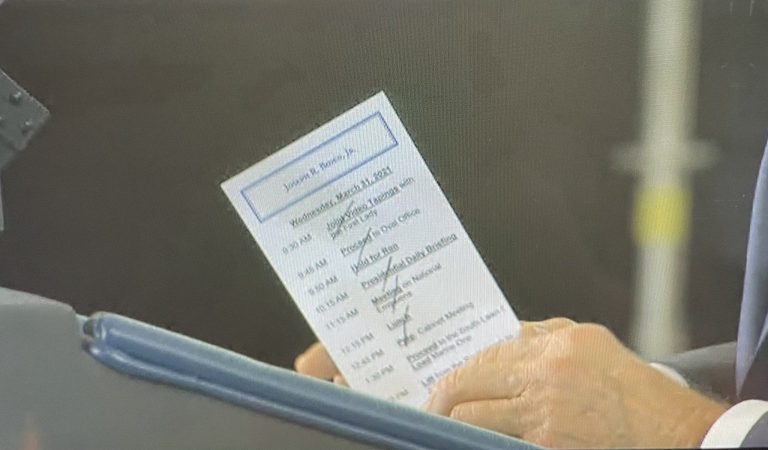 Joseph R. Biden, Jr.
Wednesday, March 31, 2021
9:30 AM Joint Video Tapings with
the First Lady
9:45 AM Proceed to Oval Office
9:50 AM Hold for Ron
10:15 AM Presidential Daily Briefing
11:15 AM Meeting on National
12:15 PM Lunch
12:45 PM Cabinet Meeting
1:30 PM Proceed to the South Lawn
Load Marine One
PM Lift from the